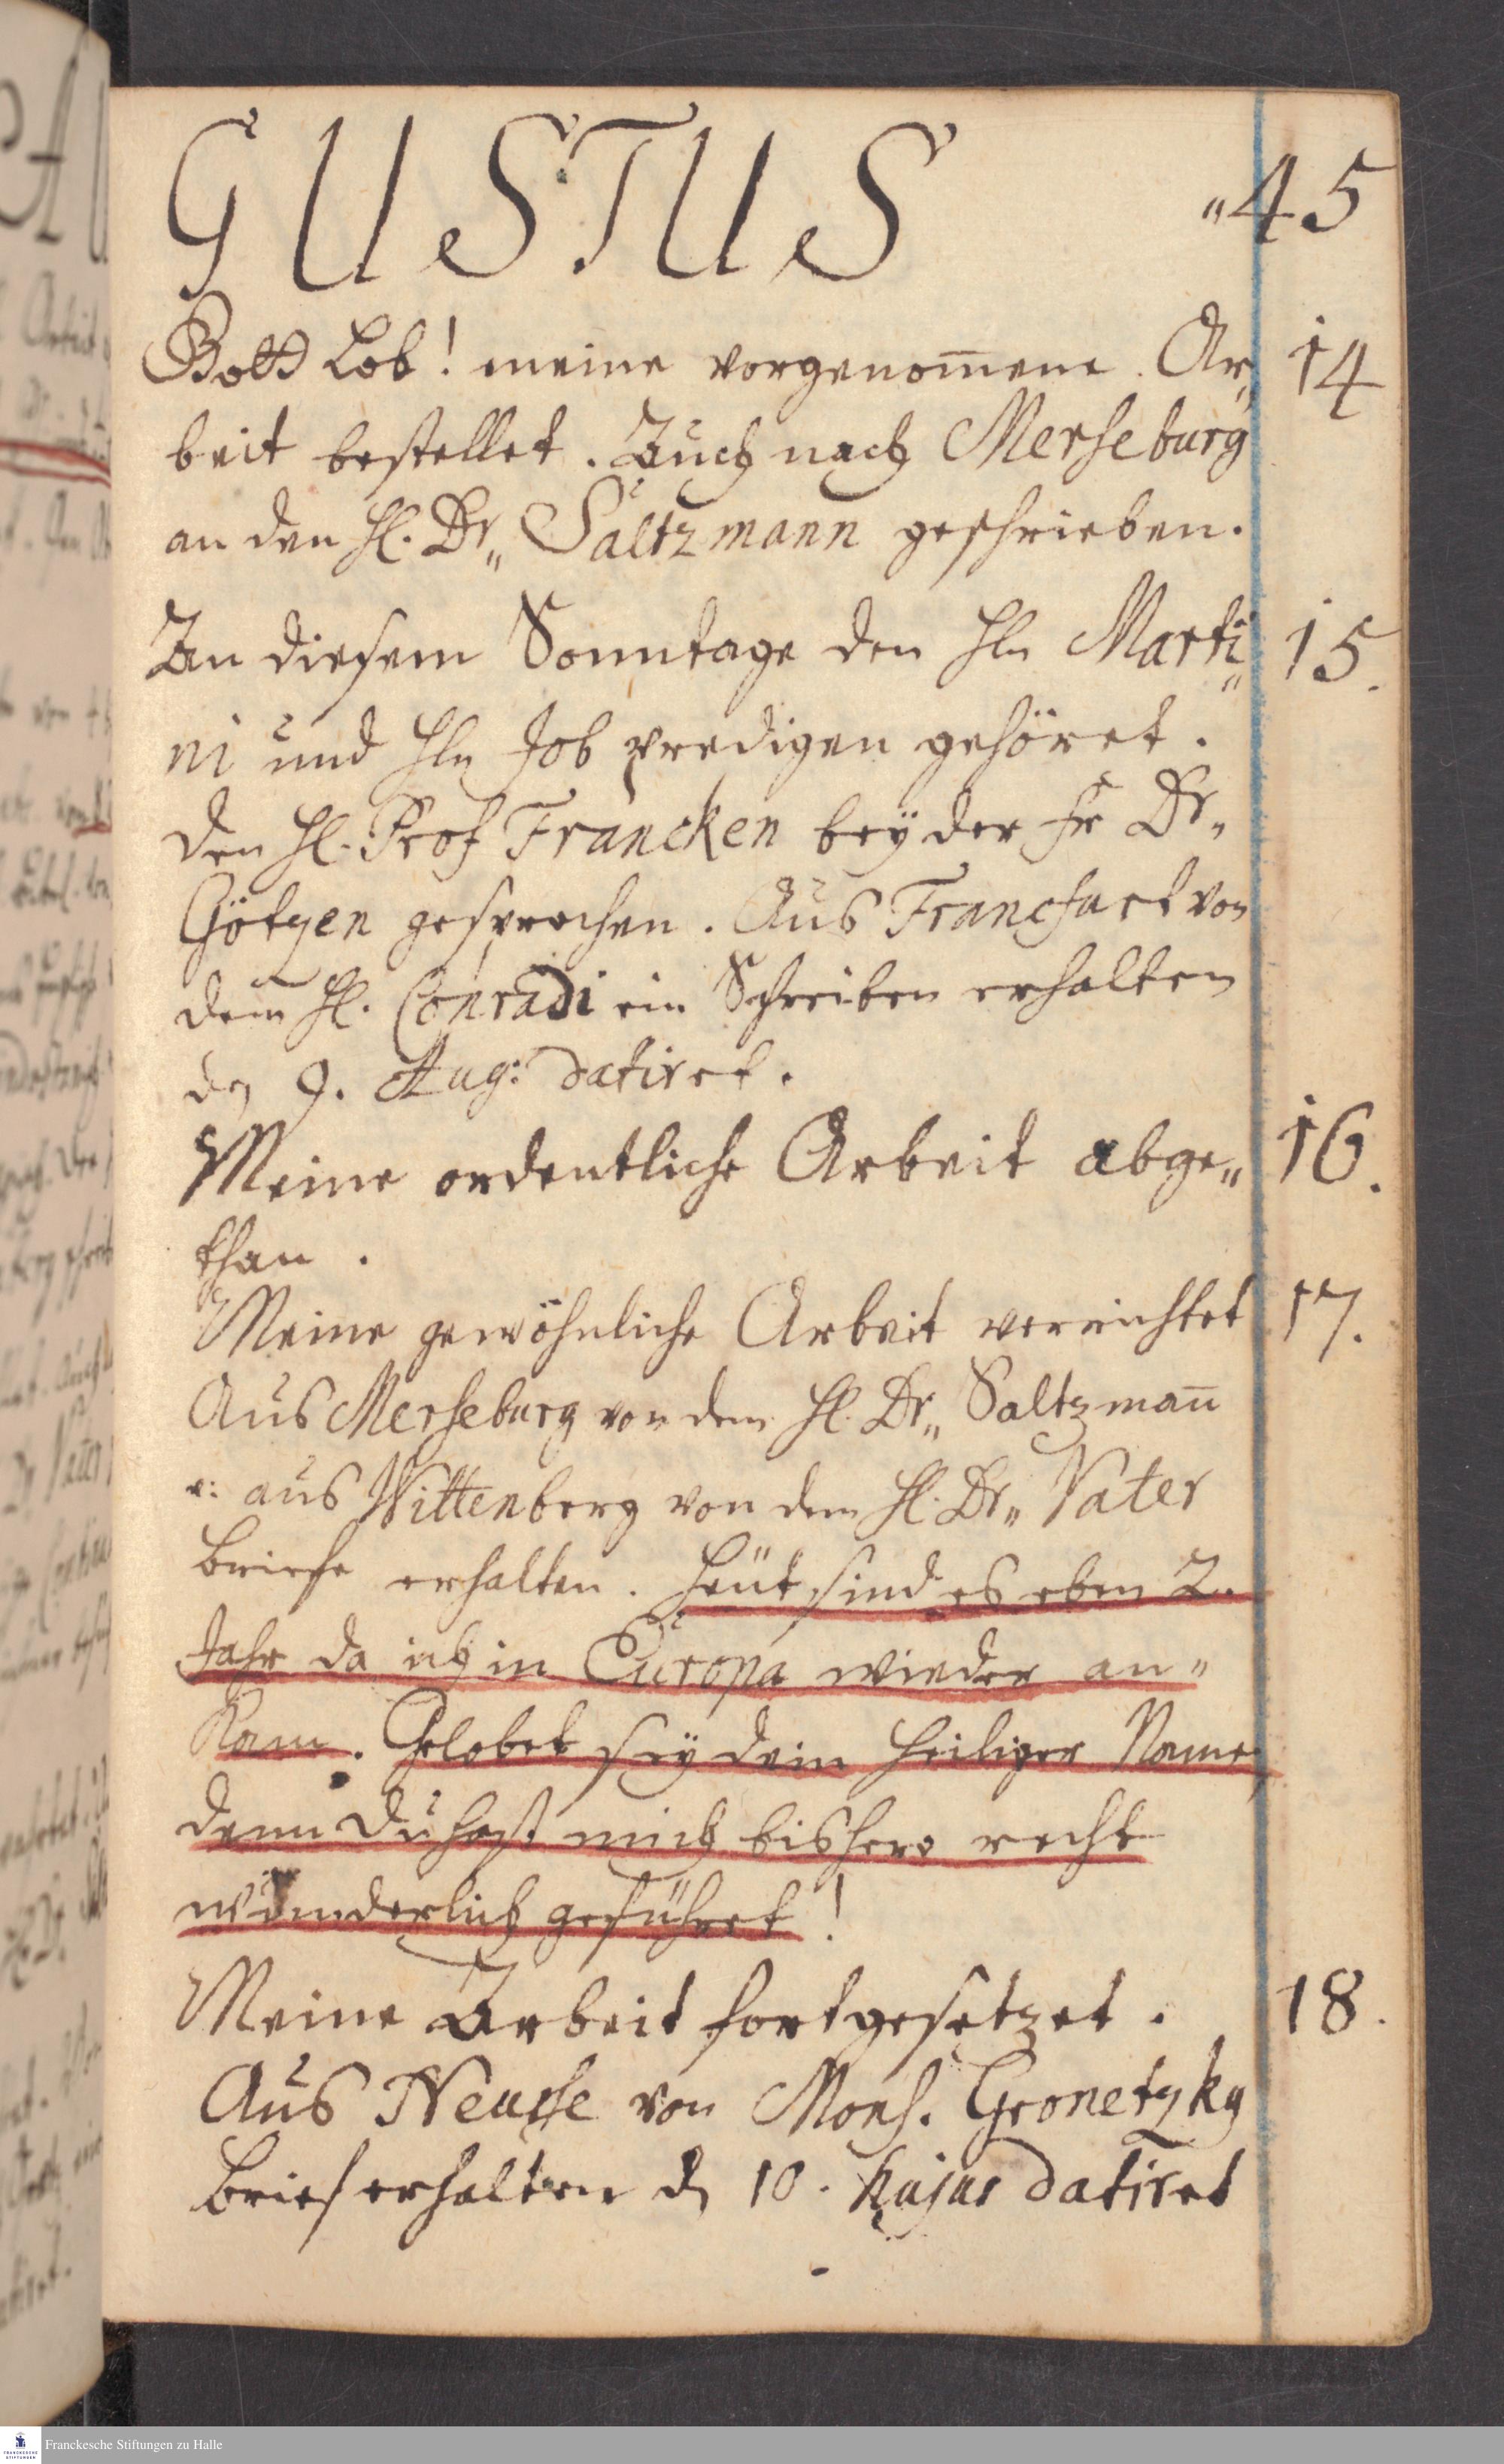 GUSTUS „45
Gott Lob! meine vorgenom̄ene Ar„ 14
beit bestellet. Auch nach Merseburg
an den H. Dr„ Saltzmann geschrieben.
An diesem Sonntage den Hln Marti„ 15.
ni und Hln Job predigen gehöret.
den H. Prof Francken beÿ der Fr Dr„
Götzen gesprochen. Aus Francfurt von
dem H. Conradi ein Schreiben erhalten
dn 9. Aug: datiret.
Meine ordentliche Arbeit abge„ 16.
than.
Meine gewöhnliche Arbeit verrichtet 17.
Aus Merseburg von dem H. Dr„ Saltzman̄
u: aus Wittenberg von dem H. Dr„ Vater
Briefe erhalten. Heut sind es eben 2.
Jahr da ich in Europa wieder an„
kam. Gelobet seÿ dein heiliger Name,
denn du hast mich bishero recht
wunderlich geführet!
Meine Arbeit fortgesetzet. 18.
Aus von Mons. Gronetzky
Brief erhalten dn 10. hujus datiret
Franckesche Stiftungen zu Halle